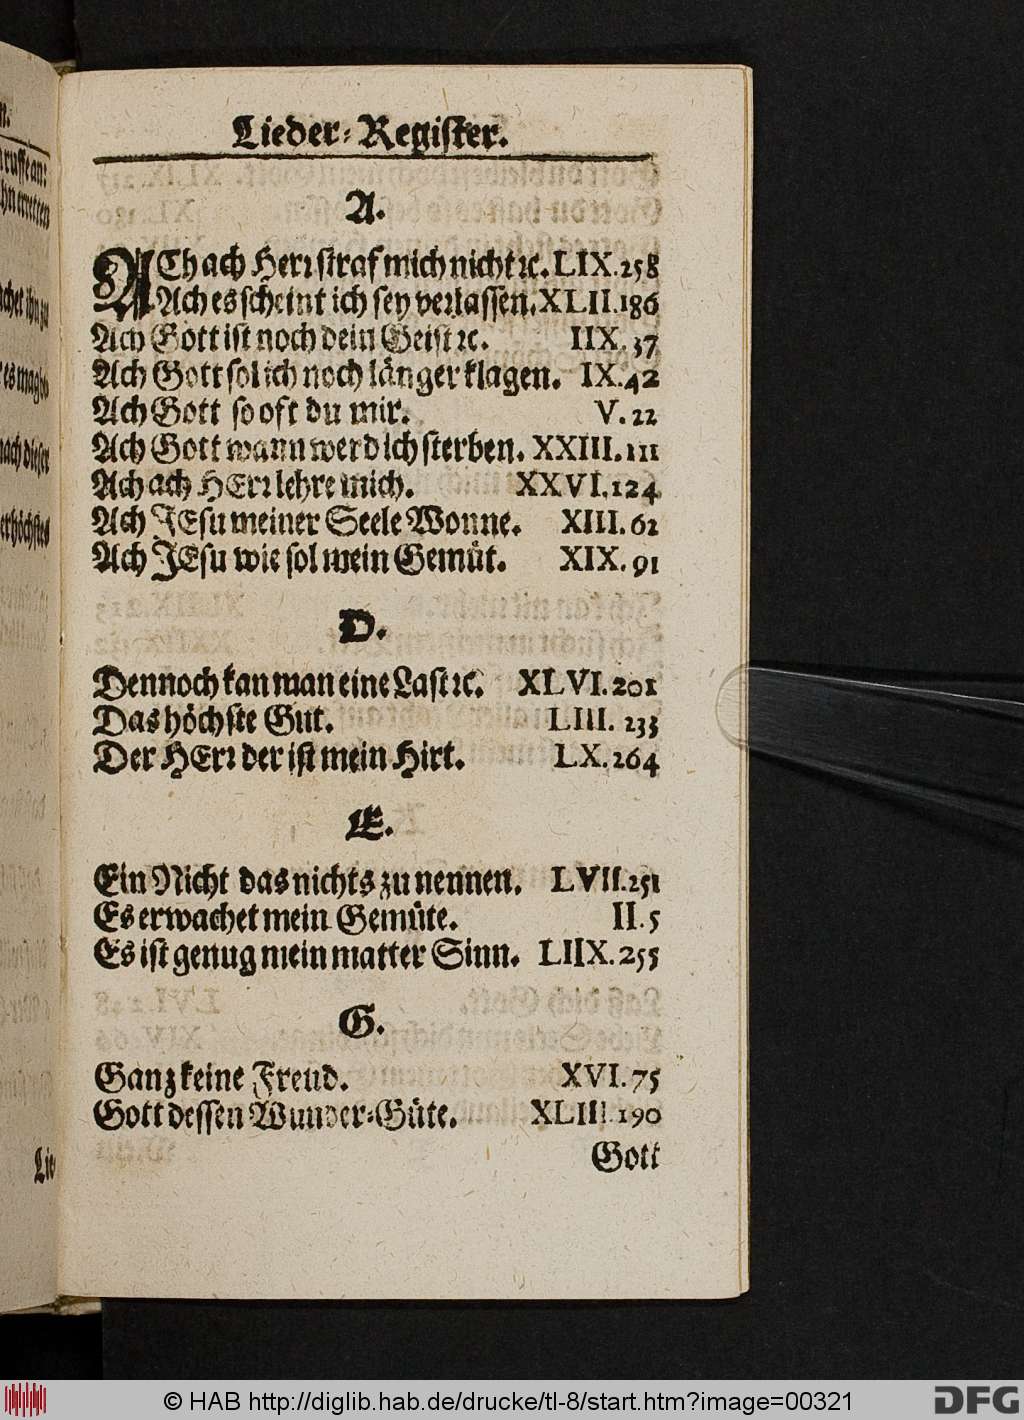 Lieder-Register.
A.
ACh ach Herr straf mich nicht ꝛc. LIX. 258
Ach es scheint ich sey verlassen. XLII. 186
Ach Gott ist noch dein Geist ꝛc. IIX. 37
Ach Gott sol ich noch länger klagen. IX. 42
Ach Gott so oft du mir. V. 22
Ach Gott wann werd ich sterben. XXIII. 111
Ach ach HErr lehre mich. XXVI. 124
Ach JEsu meiner Seele Wonne. XIII. 62
Ach JEsu wie sol mein Gemüt. XIX. 91
D.
Dennoch kan man eine Last ꝛc. XLVI. 201
Das höchste Gut. LIII. 233
Der HErr der ist mein Hirt. LX. 264
E.
Ein Nicht das nichts zu nennen. LVII. 251
Es erwachet mein Gemüte. II. 5
Es ist genug mein matter Sinn. LIIX. 255
G.
Ganz keine Freud. XVI. 75
Gott dessen Wunder-Güte. XLIII. 190
Gott
© HAB http://diglib.hab.de/drucke/tl-8/start.htm?image=00321
DFG